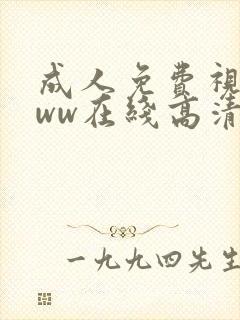 成人免費視
ww在綫高清
一九九四先生